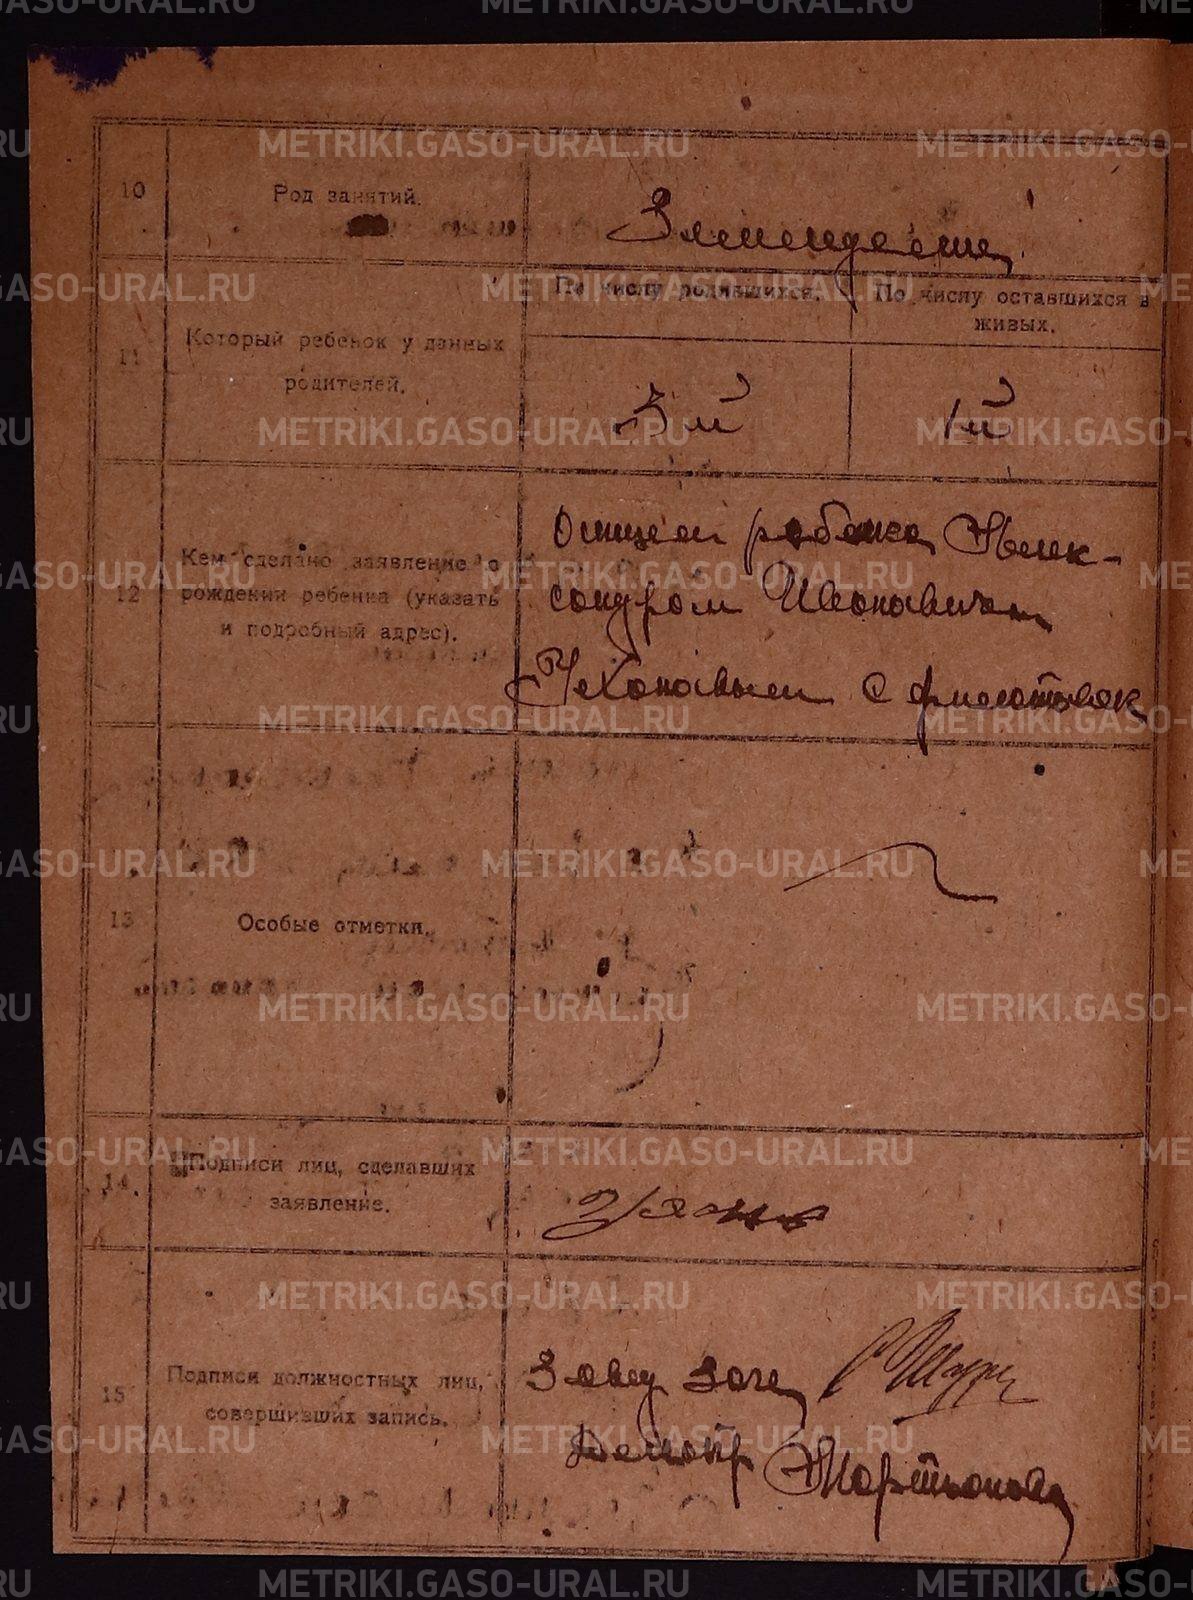 10
Род занятий.
Земледелец
11
Который ребенок у данных
родителей.
По числу родившихся.
По числу оставшихся в
живых.
3й
1й
12
Кем сделано заявление о
рождении ребенка (указать
и подробный адрес).
Отцем ребенка
Ивановичем
Чехоновым с
13
Особые отметки.
14.
Подписи лиц, сделавших
заявление.
15
Подписи должностных лиц,
совершивших запись.
Заву Загс
Мартьянова
METRIKI.GASO-URAL.RU